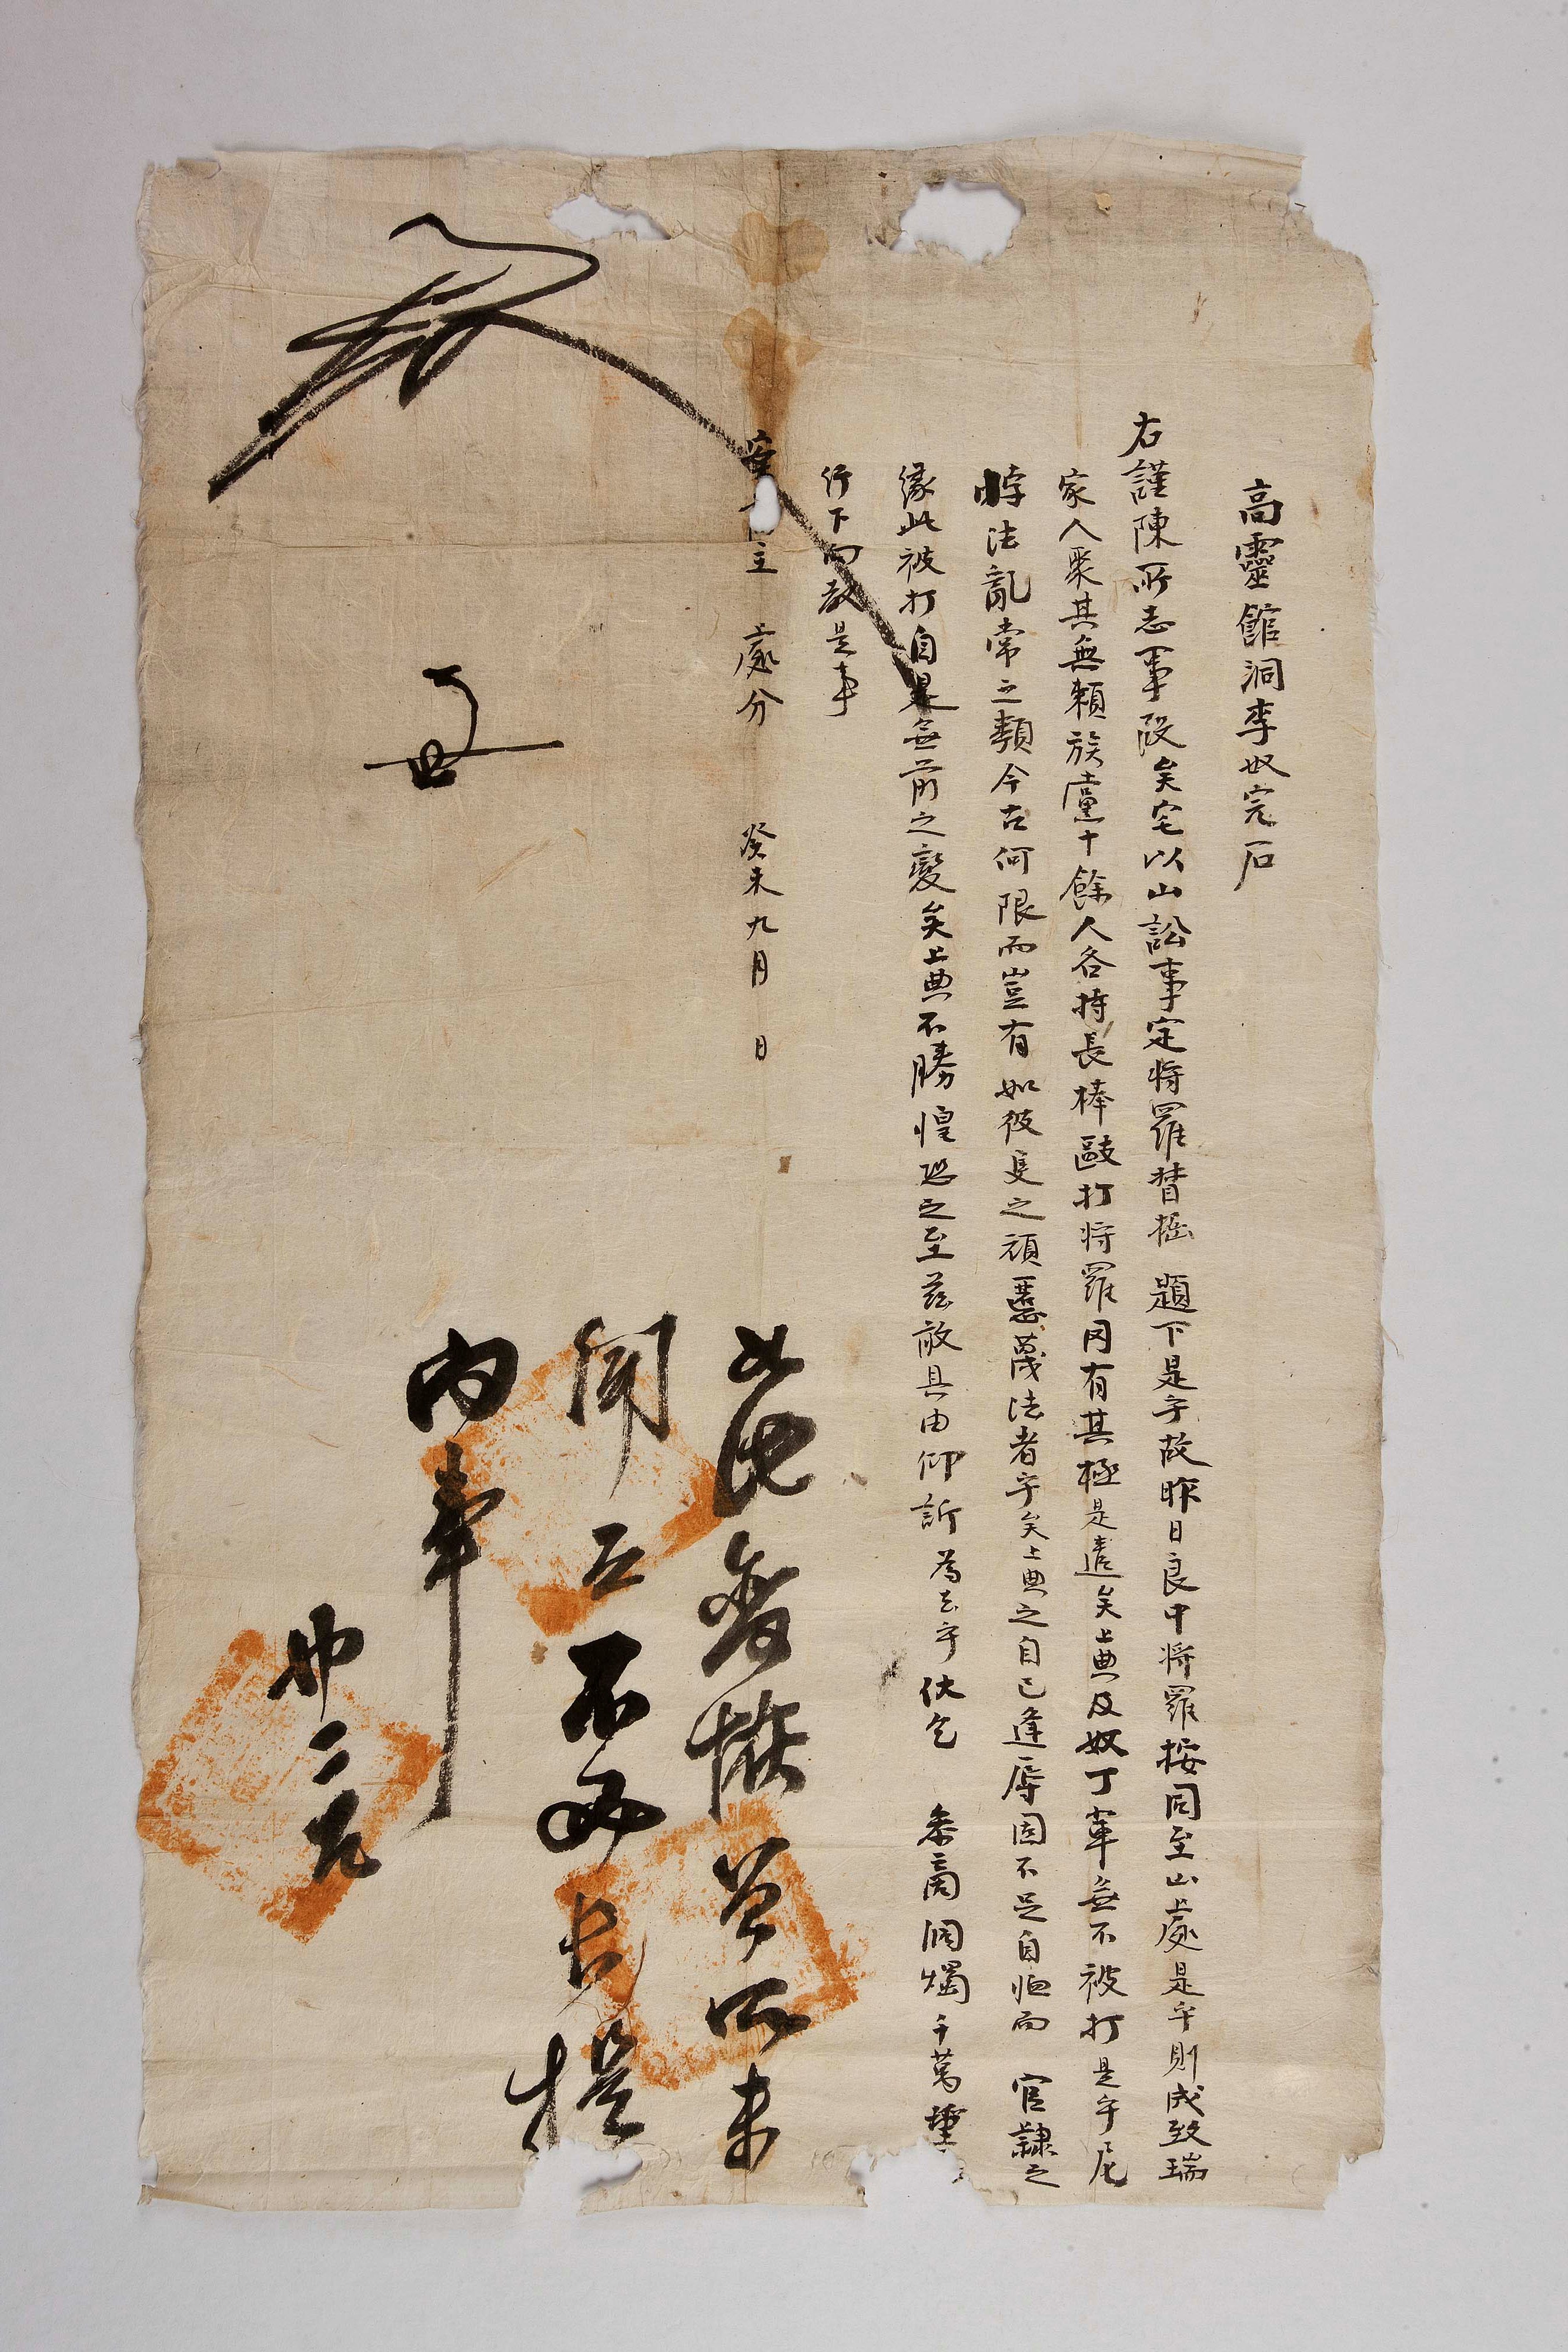 高靈館洞李奴完石
右謹陳所志事段矣宅以山訟事定將羅督掘 題下是乎故昨日良中將羅按同至山處是乎則成致瑞
家人聚其無賴族黨十餘人各持長棒毆打將羅罔有其極是遣矣上典及奴丁輩無不被打是乎尼
悖法亂常之類今古何限而豈有如彼隻之頑惡蔑法者乎矣上典之自己逢辱固不足自恤而 官隸之
緣此被打自是無前之變矣上典不勝惶恐之至玆敢具由仰訴爲去乎伏乞 參商洞燭千萬望
行下向敎是事
主 處分 癸未九月 日
此
聞 不
向事
卄二